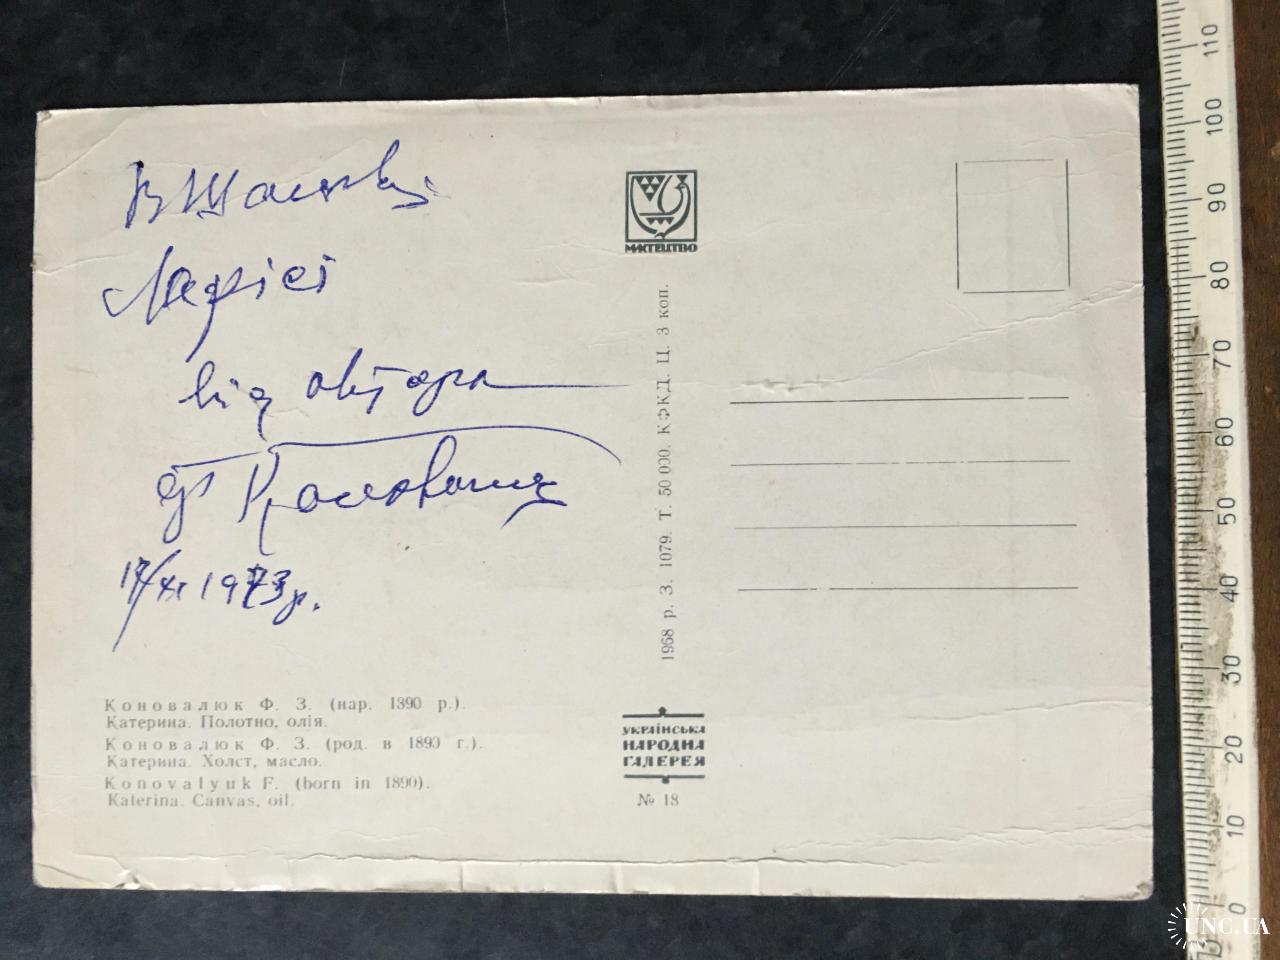 від автора
1973 р.
Коновалюк Ф. З. (нар. 1890 р.).
Катерина. Полотно, олія.
Коновалюк Ф. З. (род. в 1890 г.).
Катерина. Холст, масло.
Konovalyuk F. (born in 1890).
Katerina. Canvas, oil.
МИСТЕЦТВО
1968 р. З. 1079. Т. 50 000. КФКД. Ц. 3 коп.
УКРАЇНСЬКА
НАРОДНА
ГАЛЕРЕЯ
№ 18
110
100
90
80
70
60
50
40
30
20
10
0
UNC.UA